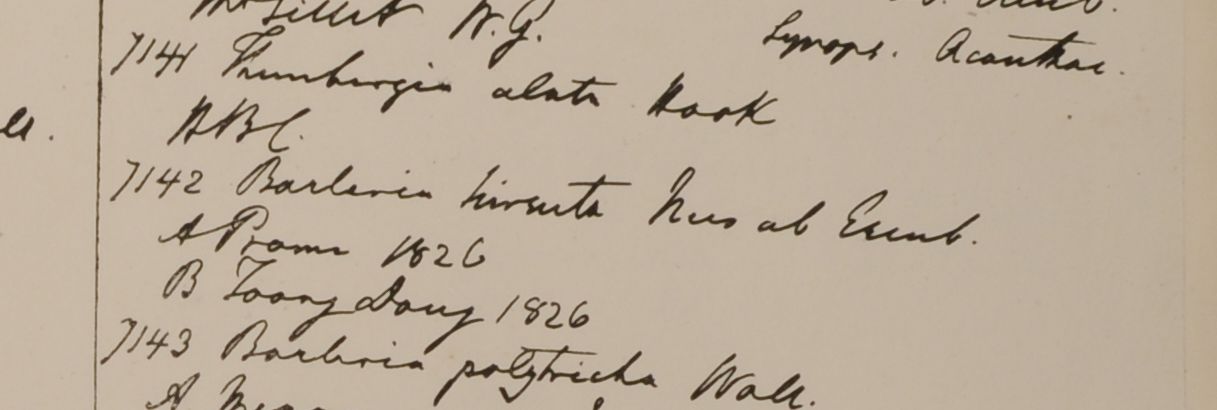 Synops. Acanthac.
7141 Thunbergia alata Hook
HBC.
7142 Barleria hirsuta Nees ab Esenb.
A Prome 1826
B Toong Dong 1826
7143 Barleria polytricha Wall.